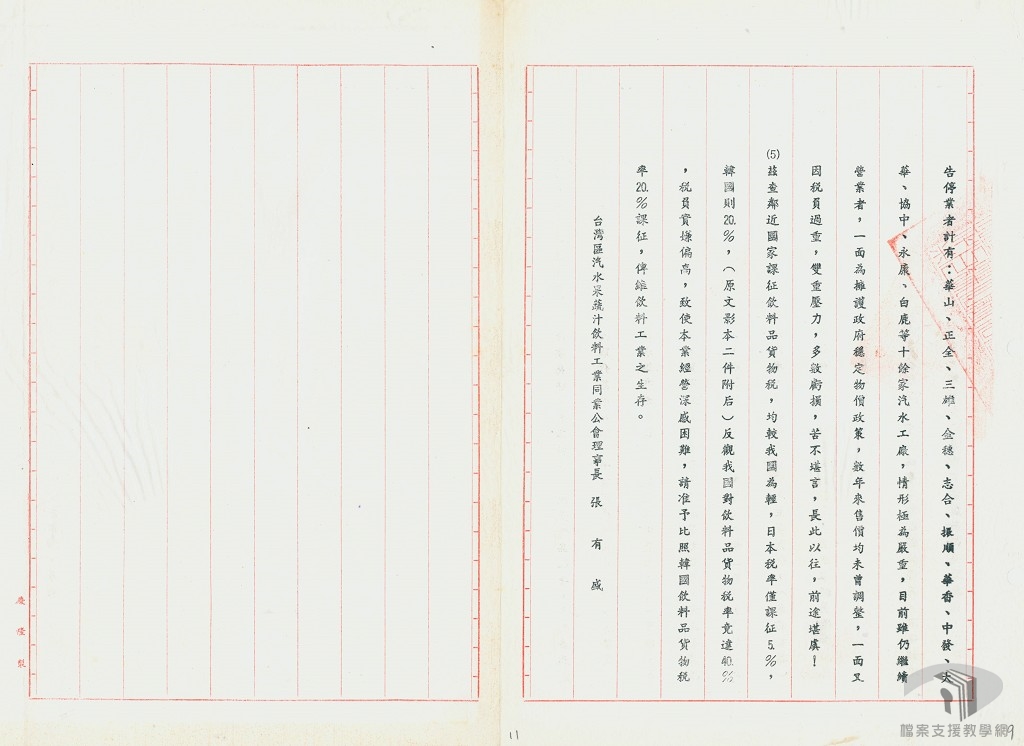 告停業者計有：華山、正全、三雄、金穗、志合、振順、華香、中發、大
華、協中、永康、白鹿等十餘家汽水工廠，情形極為嚴重，目前雖仍繼續
營業者，一面為擁護政府穩定物價政策，數年來售價均未曾調整，一面又
因稅負過重，雙重壓力，多數虧損，苦不堪言，長此以往，前途堪虞！
(5)茲查鄰近國家課征飲料品貨物稅，均較我國為輕，日本稅率僅課征5.%，
韓國則20.%，（原文影本二件附后）反觀我國對飲料品貨物稅率竟達40.%
，稅員實嫌偏高，致使本業經營深感困難，請准予比照韓國飲料品貨物稅
率20.%課征，俾維飲料工業之生存。
台灣區汽水果蔬汁飲料工業同業公會理事長 張 有 盛
慶隆製
11
9
檔案支援教學網